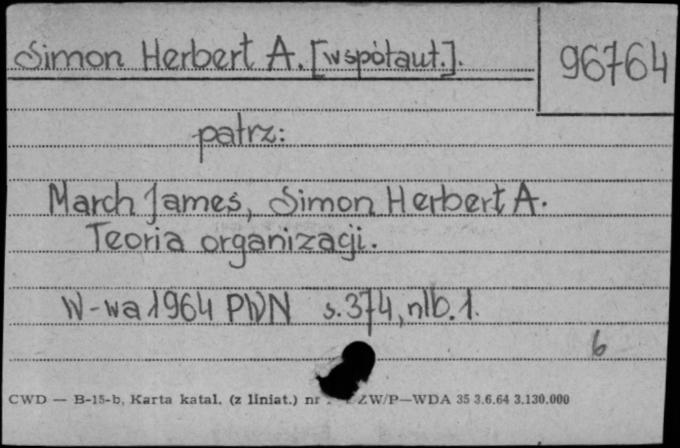 Simon Herbert A. [współaut.].
96764
patrz:
March James, Simon Herbert A.
Teoria organizacji.
W-wa 1964 PWN s. 374, nlb. 1.
6
CWD — B-15-b, Karta katal. (z liniat.) nr ZW/P—WDA 35 3.6.64 3.130.000